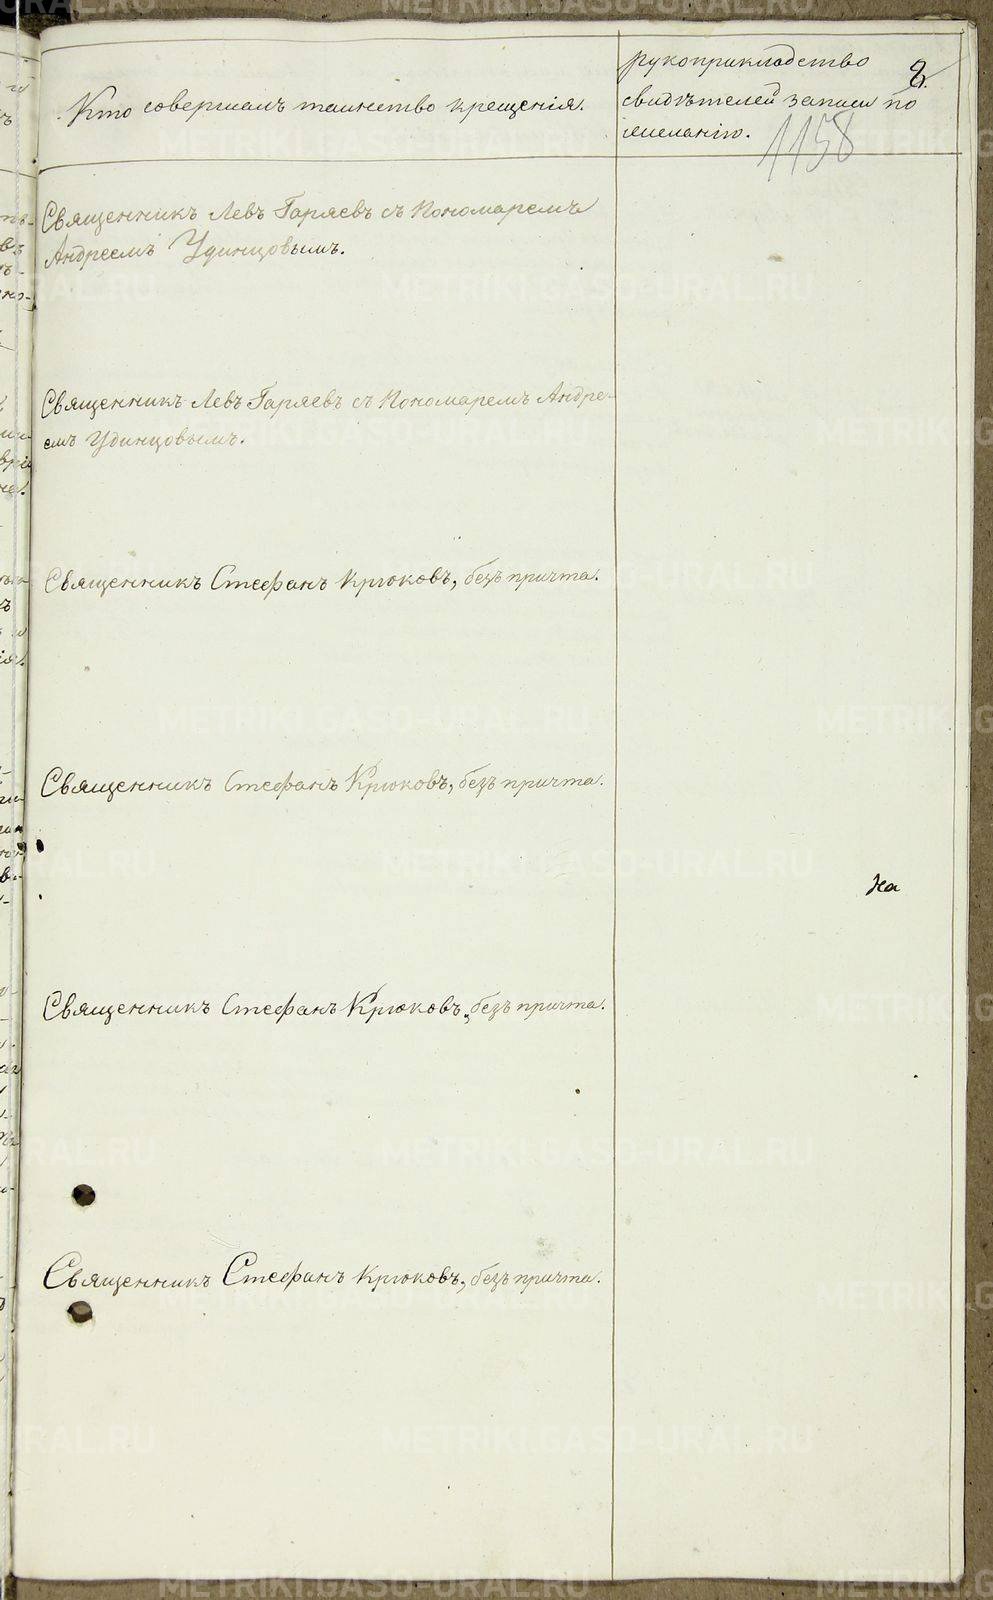 Кто совершалъ таинство крещенія.
рукоприкладство
свидѣтелей записи по
желанію.
8.
1158
Священникъ Левъ Гаряевъ съ Пономаремъ
Андреемъ Удинцовымъ.
Священникъ Левъ Гаряевъ съ Пономаремъ Андре-
емъ Удинцовымъ.
Священникъ Стефанъ Крюковъ, безъ причта.
Священникъ Стефанъ Крюковъ, безъ причта.
на
Священникъ Стефанъ Крюковъ, безъ причта.
Священникъ Стефанъ Крюковъ, безъ причта.
METRIKI.GASO-URAL.RU